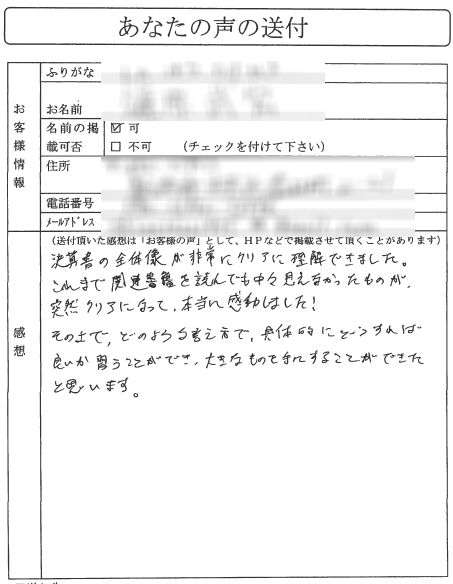 あなたの声の送付
お客様情報
ふりがな
お名前
名前の掲載可否
☑ 可
☐ 不可 (チェックを付けて下さい)
住所
電話番号
メールアドレス
感想
(送付頂いた感想は「お客様の声」として、HPなどで掲載させて頂くことがあります)
決算書の全体像が非常にクリアに理解できました。
これまで関連書籍を読んでも中々見えなかったものが、
突然クリアになって、本当に感動しました!
その上で、どのような考え方で、具体的にどうすれば
良いか習うことができ、大きなものを手にすることができた
と思います。